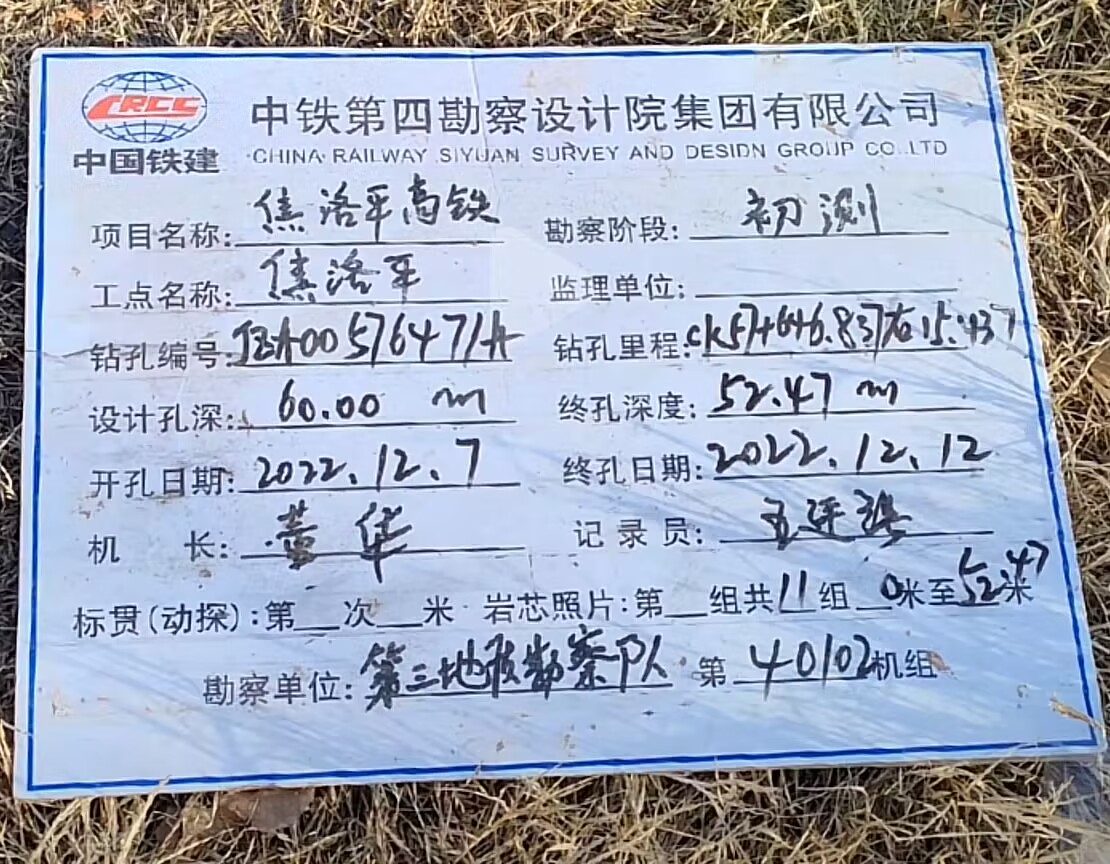 CRCC
中国铁建
中铁第四勘察设计院集团有限公司
CHINA RAILWAY SIYUAN SURVEY AND DESIGN GROUP CO.,LTD
项目名称: 焦洛平高铁 勘察阶段: 初测
工点名称: 焦洛平 监理单位:
钻孔编号: JZA00576471A 钻孔里程: CK57+646.837右15.437
设计孔深: 60.00 m 终孔深度: 52.47 m
开孔日期: 2022.12.7 终孔日期: 2022.12.12
机 长: 黄华 记录员:
标贯(动探): 第 次 米 岩芯照片: 第 组共11组 0米至52.47米
勘察单位: 第三地质勘察队 第40102机组